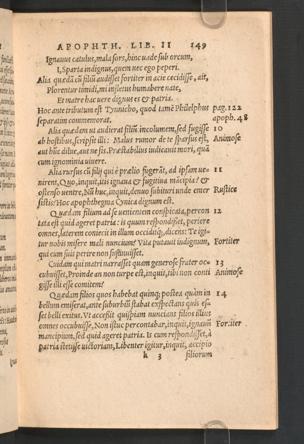 APOPHTH. LIB. II 149
Ignauus catulus, mala sors, hinc uade sub orcum,
I, Sparta indignus, quem nec ego peperi.
Alia quædã cũ filiũ audisset fortiter in acie cecidisse, ait,
Plorentur timidi, mi inflętus humabere nate,
Et matre hac uere dignus es & patria.
Hoc ante tributum est Tynnicho, quod tamẽ Philelphus pag. 122
separatim commemorat. apoph. 48
Alia quædam ut audierat filiũ incolumem, sed fugisse 10
ab hostibus, scripsit illi: Malus rumor de te sparsus est, Animose
aut hũc dilue, aut ne sis. Præstabilius iudicauit mori, quàm
cum ignominia uiuere.
Alia rursus cũ filij qui è prælio fugerãt, ad ipsam ue- 11
nirent, Quo, inquit, itis ignaua & fugitiua mãcipia? &
ostenso uentre, Nũ huc, inquit, denuo subituri unde emer Rustice
sistis? Hoc apophthegma Cynica dignum est.
Quædam filium ad se uenientem conspicata, percon 12
tata est quid ageret patria: is quum respondisset, periere
omnes, laterem coniecit in illum occiditq́, dicens: Te igi
tur nobis misere mali nuncium? Vita putauit indignum, Fortiter
qui cum suis petire non sustinuisset.
Cuidam qui matri narrasset quam generose frater oc- 13
cubuisset, Proinde an non turpe est, inquit, tibi non conti Animose
gisse illi esse comitem?
Quædam filios quos habebat quinq; postea quàm in 14
bellum emiserat, ante suburbiũ stabat exspectans quis es-
set belli exitus. Vt accessit quispiam nuncians filios illius
omnes occubuisse, Non istuc percontabar, inquit, ignauũ Fortiter
mancipium, sed quid ageret patria. Is cum respondisset, à
patria stetisse uictoriam, Libenter igitur, inquit, accipio
k 3 filiorum